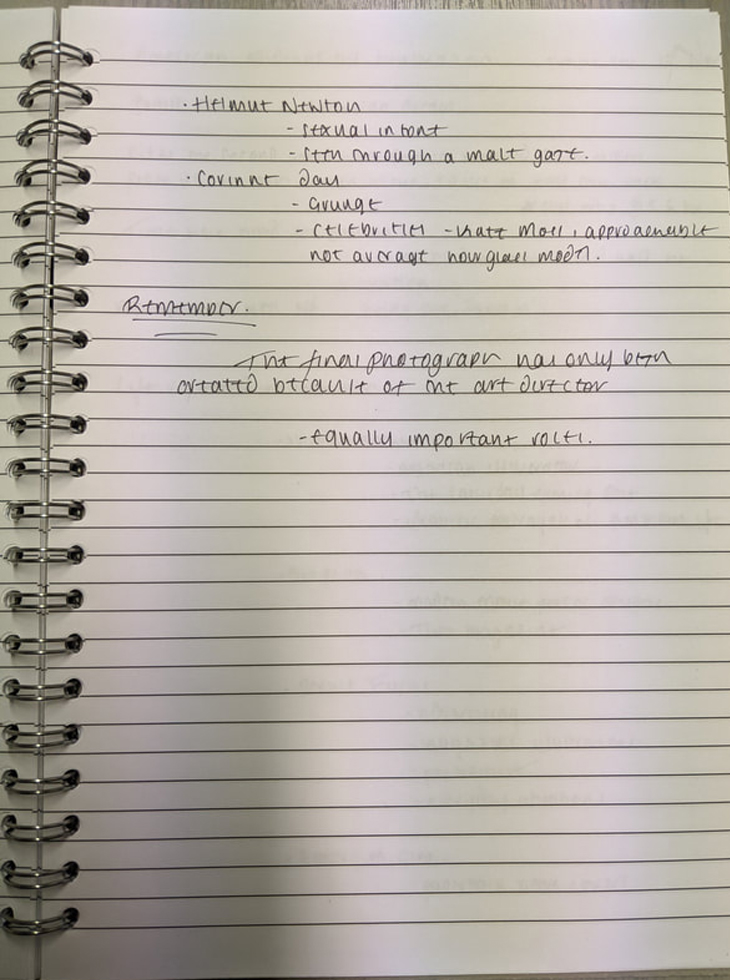 · Helmut Newton
- sexual intent
- seen through a male gaze.
· Corinne Day
- Grunge
- celebrities - Kate Moss, approachable
not average now glass model.
Remember.
The final photograph has only been
created because of the art director
- equally important roles.